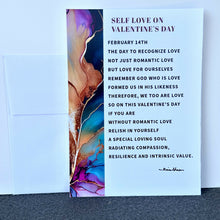 SELF LOVE ON
VALENTINE'S DAY
FEBRUARY 14TH
THE DAY TO RECOGNIZE LOVE
NOT JUST ROMANTIC LOVE
BUT LOVE FOR OURSELVES
REMEMBER GOD WHO IS LOVE
FORMED US IN HIS LIKENESS
THEREFORE, WE TOO ARE LOVE
SO ON THIS VALENTINE'S DAY
IF YOU ARE
WITHOUT ROMANTIC LOVE
RELISH IN YOURSELF
A SPECIAL LOVING SOUL
RADIATING COMPASSION,
RESILIENCE AND INTRINSIC VALUE.